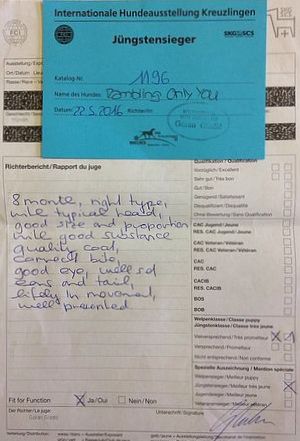 Internationale Hundeausstellung Kreuzlingen
FCI
SKG SCS
Jüngstensieger
Katalog Nr. 1196
Name des Hundes: Rambling Only You
Datum: 22.5.2016 Richter/in:
Goran
SKG SCS
Richterbericht/Rapport du juge
8 month, right type,
typical head,
good size and proportion
good substance
quality coat,
correct bite,
good eye, well set
ears and tail,
lifely in movement,
well presented
Qualifikation / Qualification
Vorzüglich/Excellent
Sehr gut/Très bon
Gut/Bon
Genügend/Satisfaisant
Disqualifiziert/Disqualifié
Ohne Bewertung/Sans Qualification
CAC Jugend/Jeune
RES. CAC Jugend/Jeune
CAC Veteran/Vétéran
RES. CAC Veteran/Vétéran
CAC
RES. CAC
CACIB
RES. CACIB
BOS
BOB
Welpenklasse/Classe puppy
Jüngstenklasse/Classe très jeune
Vielversprechend/Très prometteur X 1
Versprechend/Prometteur
Nicht entsprechend/Non conforme
Spezielle Auszeichnung / Mention spéciale
Welpensieger/Meilleur puppy
Jüngstensieger/Meilleur très jeune X
Jugendsieger/Meilleur jeune
Veteranensieger/Meilleur vétéran
Fit for Function X Ja/Oui Nein/Non
Der Richter/Le juge:
Unterschrift/Signature: